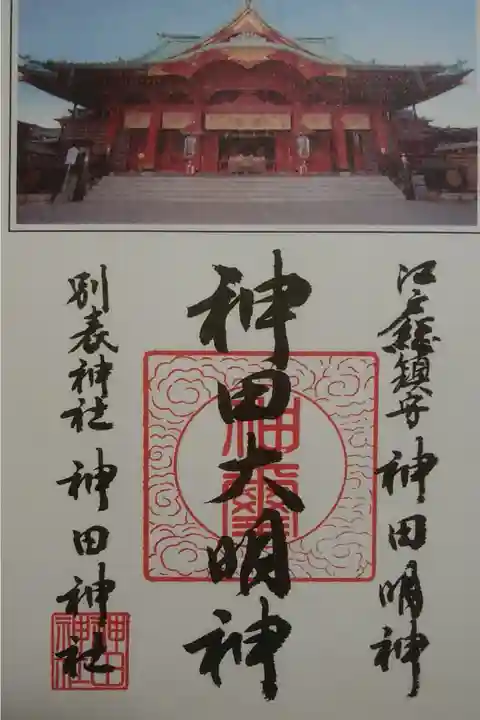 江戸総鎮守 神田明神
神田大明神
神璽
別表神社 神田神社
神田神社